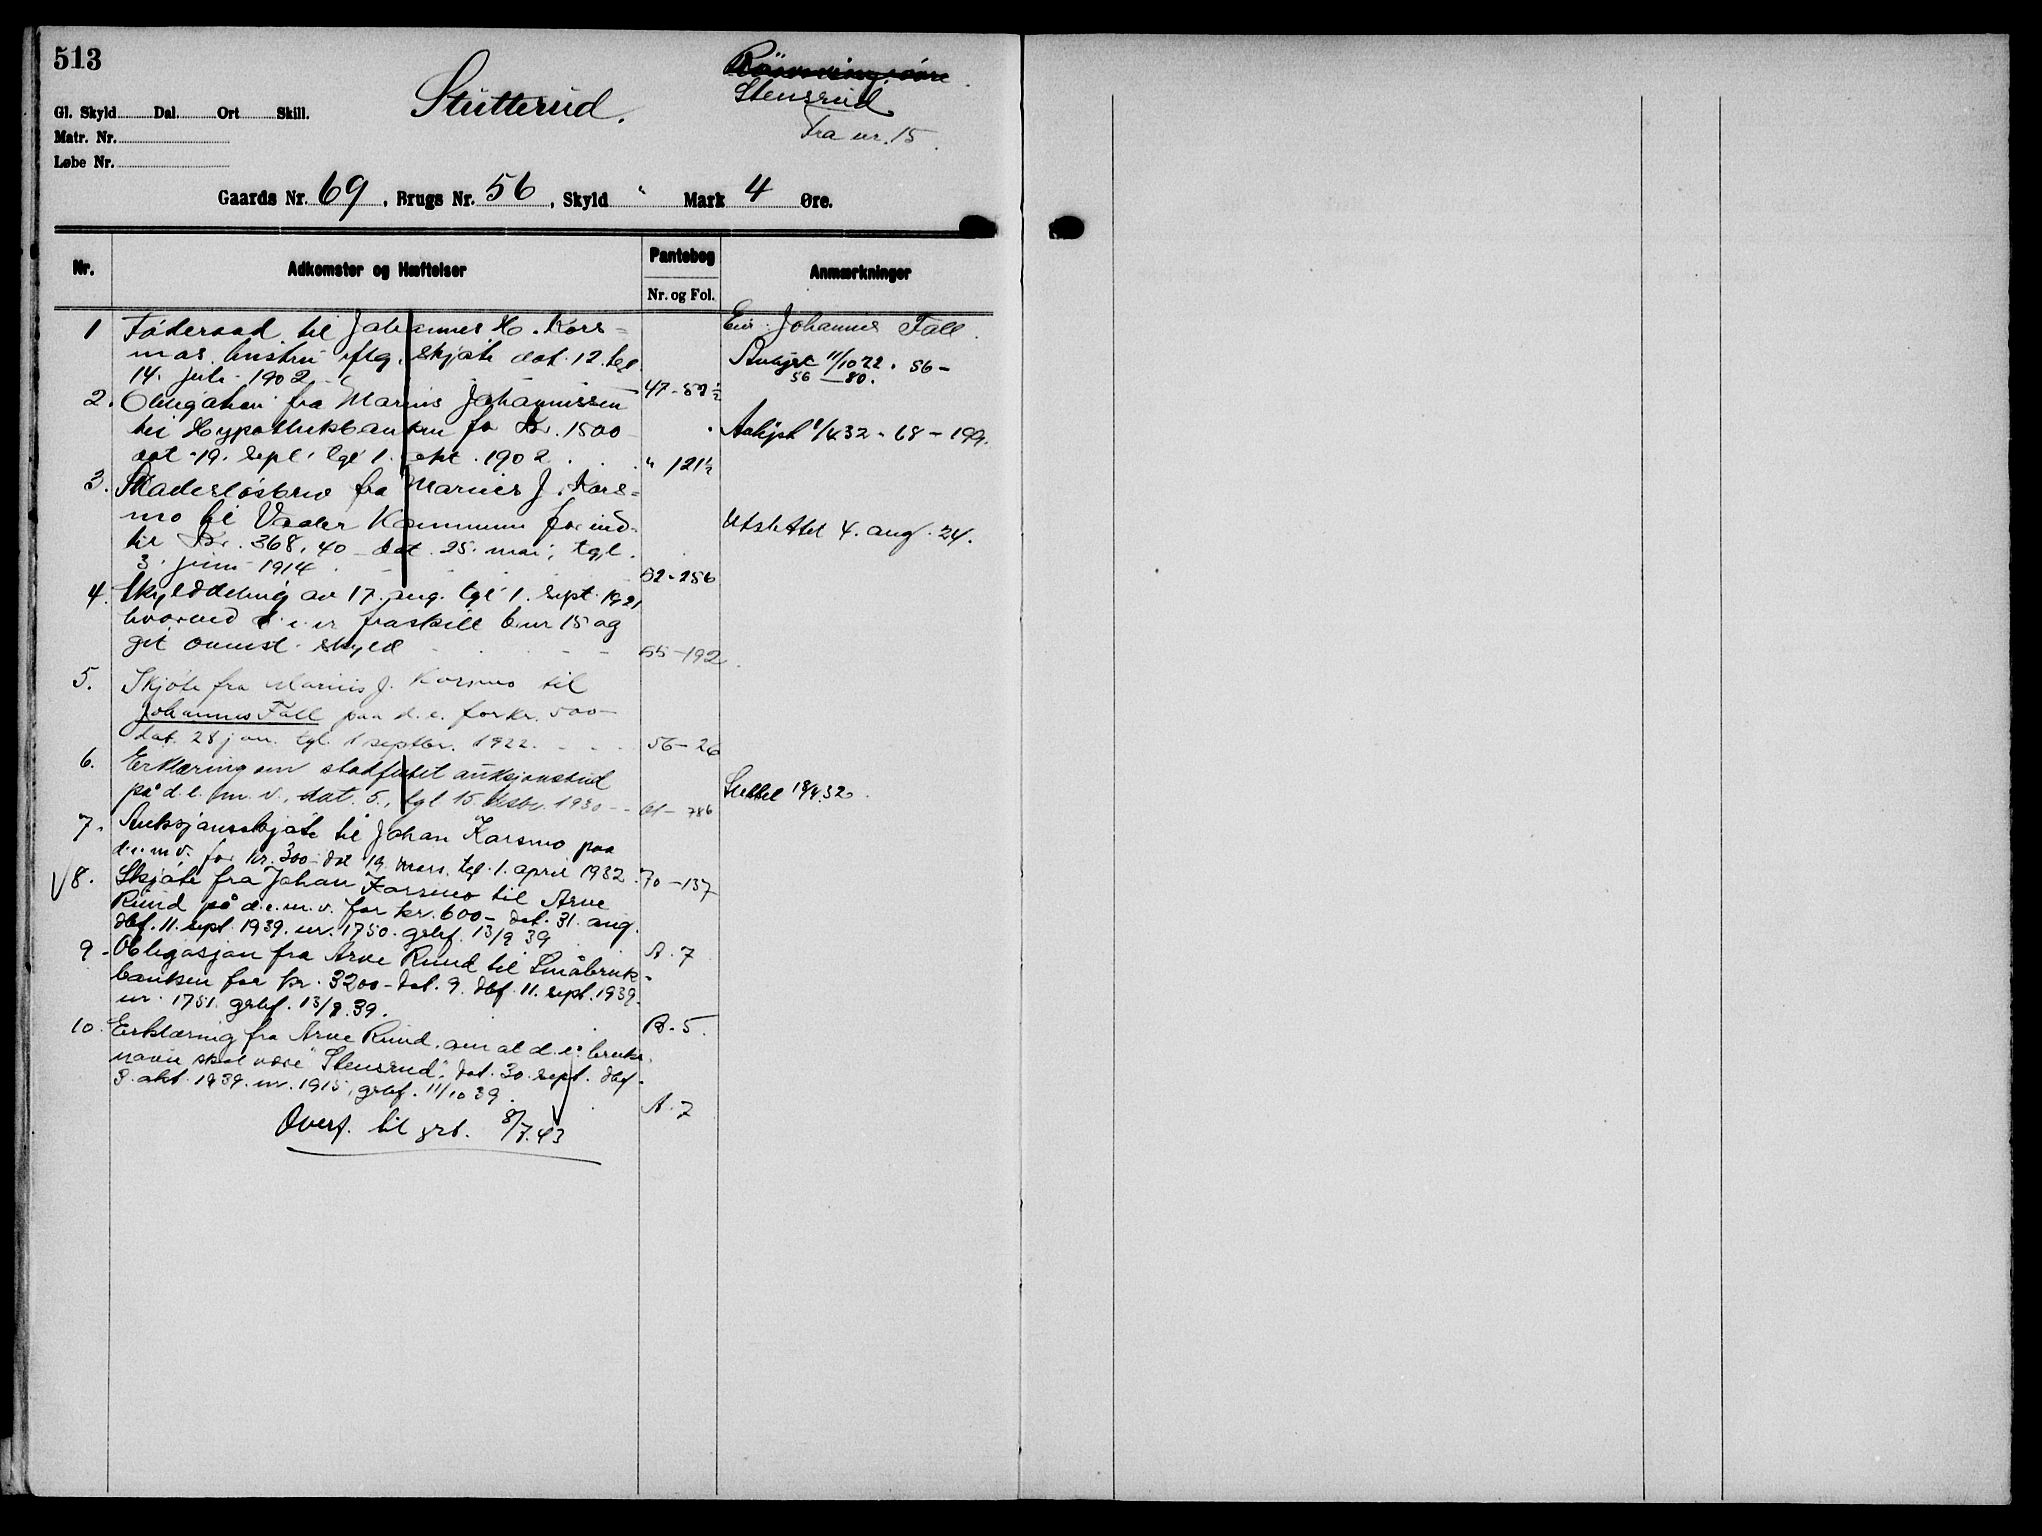 513
Stutterud.
Stensrud
Fra nr. 15.
Gl. Skyld Dal. Ort Skill.
Matr. Nr.
Løbe Nr.
Gaards Nr. 69, Brugs Nr. 56, Skyld " Mark 4 Øre.
Nr.
Adkomster og Hæftelser
Pantebog
Nr. og Fol.
Anmærkninger
1 Føderaad til Johannes H. Kors-
mos hustru iflg. skjøte dat. 12. tgl.
14. juli 1902
47-57½
Eier Johannes Fall.
11/10 22. 56-
56-80.
2. Obligation fra Marius Johannissen
til Hypothekbanken for Kr. 1500
dat 19. sept. tgl 1. okt. 1902
" 121½
1/4 32 - 68 - 199.
3. Skadesløsbrev fra Marius J. Kors-
mo til Vaaler Kommune for ind-
til Kr. 368,40 dat. 25. mai, tgl.
3. juni 1914
52-256
Utslettet 4. aug. 24.
4. Skylddeling av 17. aug. tgl 1. sept. 1921
hvorved d.e. er fraskilt bnr 15 og
git ovennst. skyld
55-192.
5. Skjøte fra Marius J. Korsmo til
Johannes Fall paa d.e. for kr. 500-
dat. 28 jan. tgl. 1 septbr. 1922.
56-26
6. Erklæring om stadfestet auksjonsbud
på d.e. m. v., dat. 5., tgl 15. desbr. 1930
61-786
Slettet 19/4 32.
7. Auksjonsskjøte til Johan Korsmo paa
d.e. m v. for kr. 300- dat 19. mars. tgl. 1. april 1932.
70-137
√8. Skjøte fra Johan Korsmo til Arve
Rund på d.e.m.v. for kr. 600- dat. 31. aug.
dbf. 11. sept. 1939. nr. 1750. grbf. 13/9 39
A. 7
9. Obligasjon fra Arve Rund til Småbruk-
banken for kr. 3200- dat. 9. dbf. 11. sept. 1939.
nr. 1751. grbf. 13/9. 39.
B. 5.
10. Erklæring fra Arve Rund om at d.e. bruks-
navn skal være "Stensrud", dat. 30. sept. dbf.
9. okt. 1939. nr. 1915, grbf. 11/10 39.
A. 7
Overf. til grb. 8/7. 43